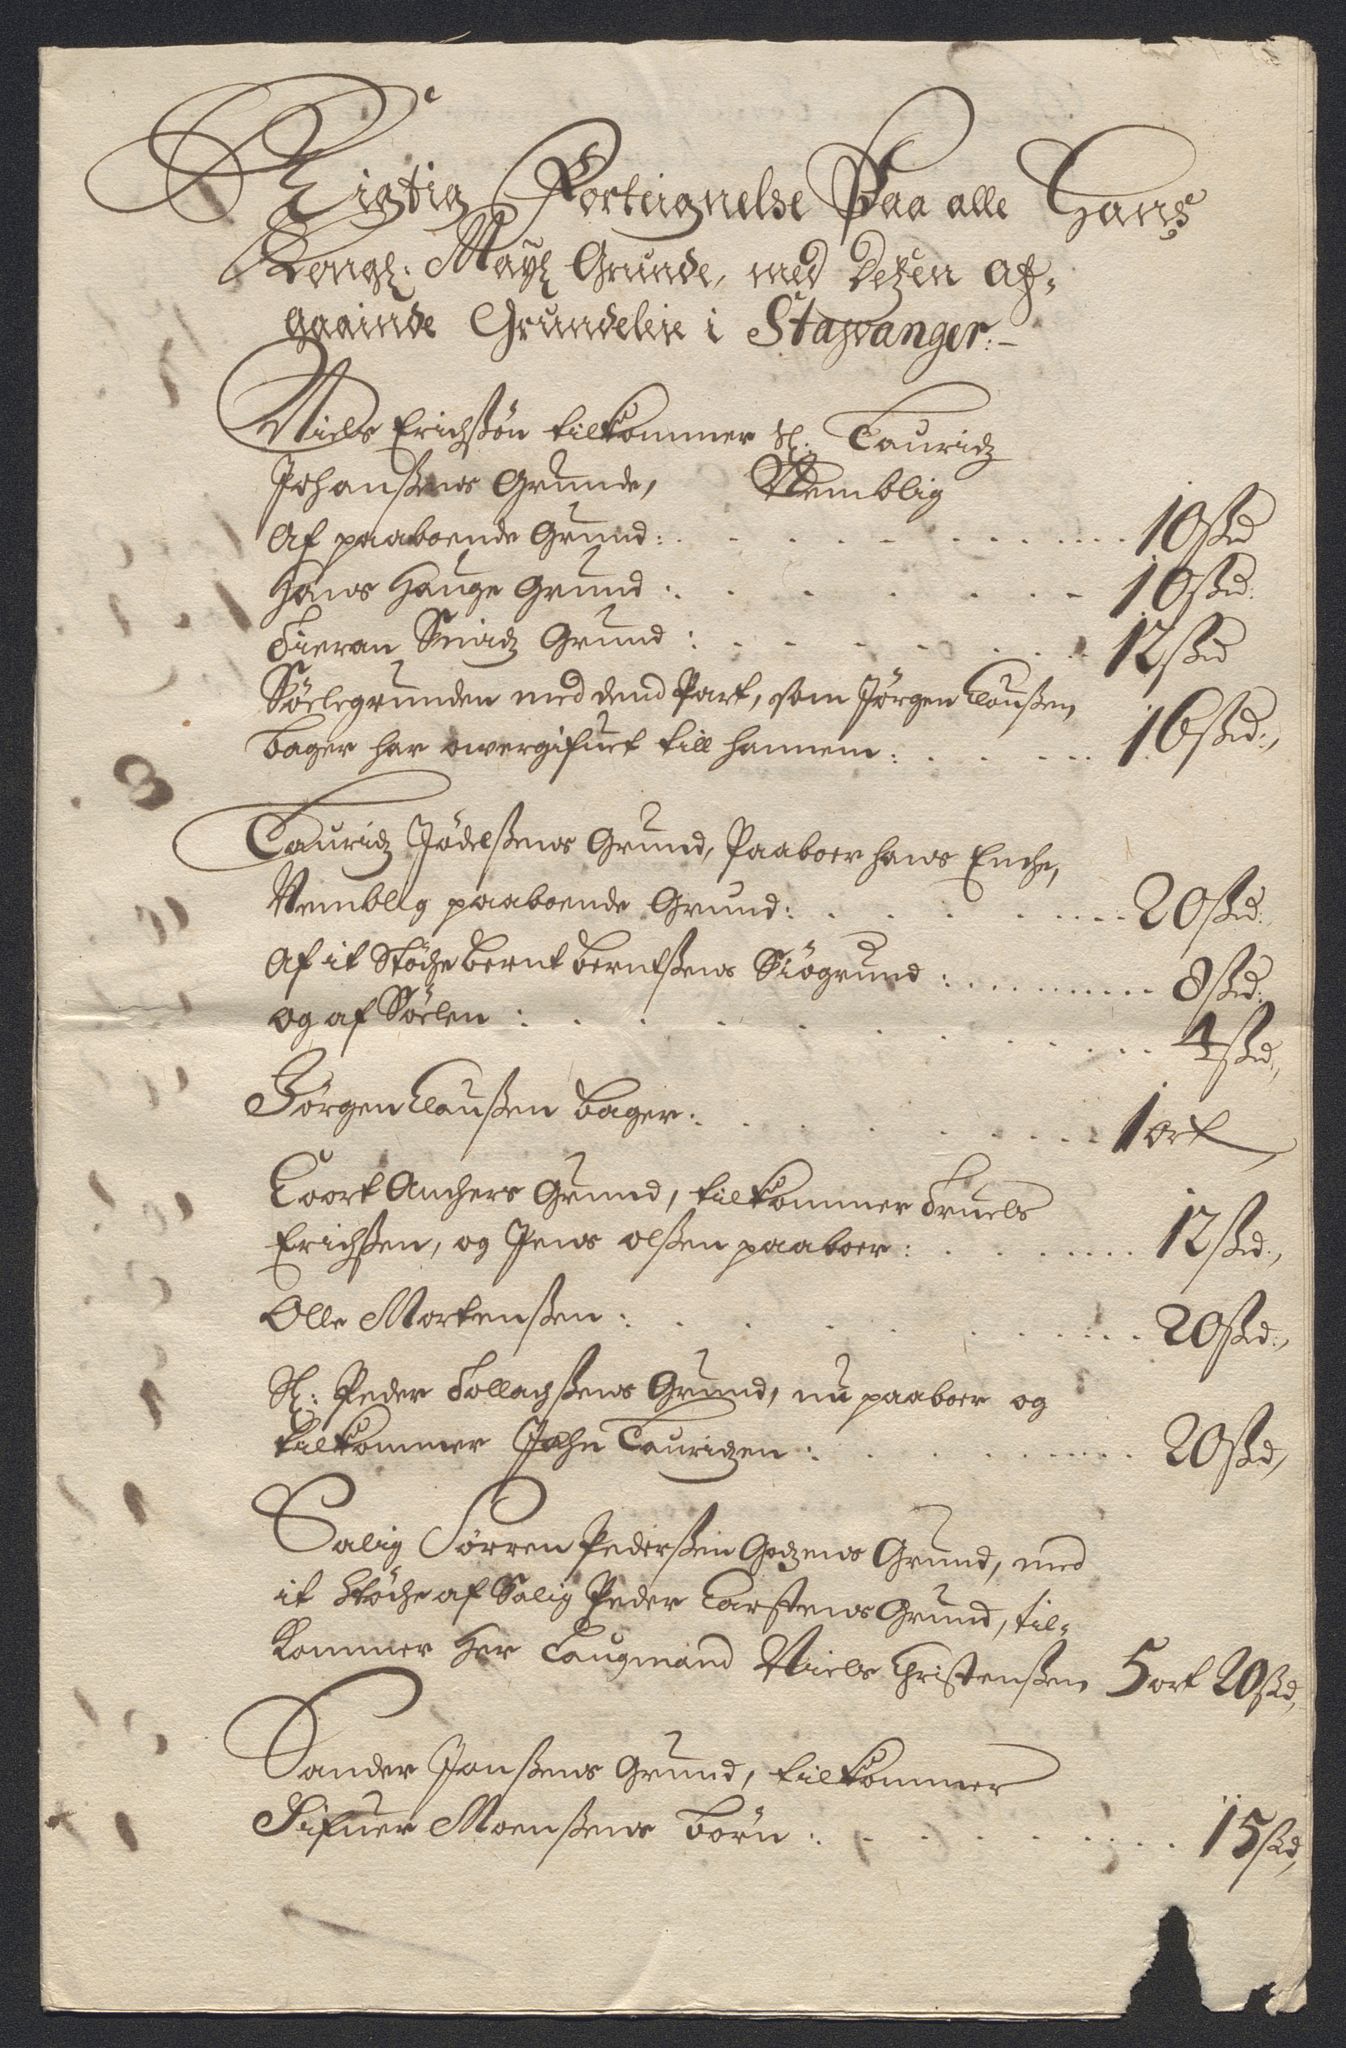 Rigtig Forteignelse Paa alle Hans
Kongl: Mayt Grunde, med deßen af-
gaainde Grundeleie i Stavanger:-
Niels Erichßøn tilkommer Sl: Lauridz
Johanßens Grunde, Nemblig
Af paaboende Grund: 10 ßd
Hans Hauge Grund: 10 ßd:
Sieran Smidz Grund: 12 ßd
Søelegrunden med dend Part, som Jørgen Claußen
Bager har owergifuet till hannem: 16 ßd:,
Lauridz Jødelßens Grund, Paaboer hans Enche,
Nemblig paaboende Grund: 20 ßd:
Af it Støche Bernt Berntßens Siøgrund: 8 ßd:
og af Søelen: 4 ßd,
Jørgen Claußen Bager: 1 ort,
Coort Anchers Grund, tilkommer Truels
Erichßen, og Jens Olßen paaboer: 12 ßd:,
Olle Mortenßen: 20 ßd:,
Sl: Peder Tollachßens Grund, nu paaboer og
tilkommer John Lauridzen: 20 ßd,
Salig Sørren Pederßen Godzens Grund, med
it Støche af Salig Peder Carstens Grund, til-
kommer Her Laugmand Niels Christenßen 5 ort 20 ßd,
Sander Janßens Grund, tilkommer
Sifuer Moenßens Børn: 15 ßd,